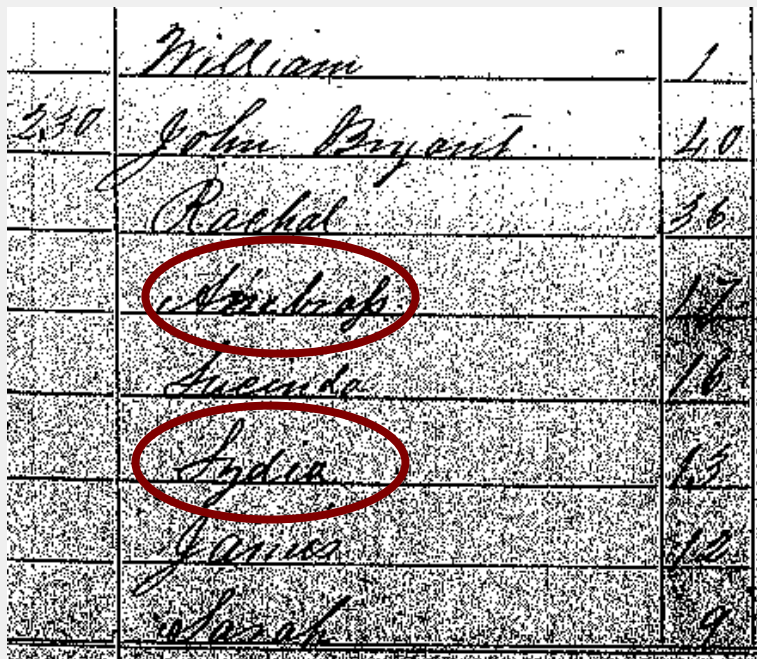 William 1
230 John Bryant 40
Rachal 36
Ambross 17
Lucinda 16
Lydia 13
James 12
Sarah 9